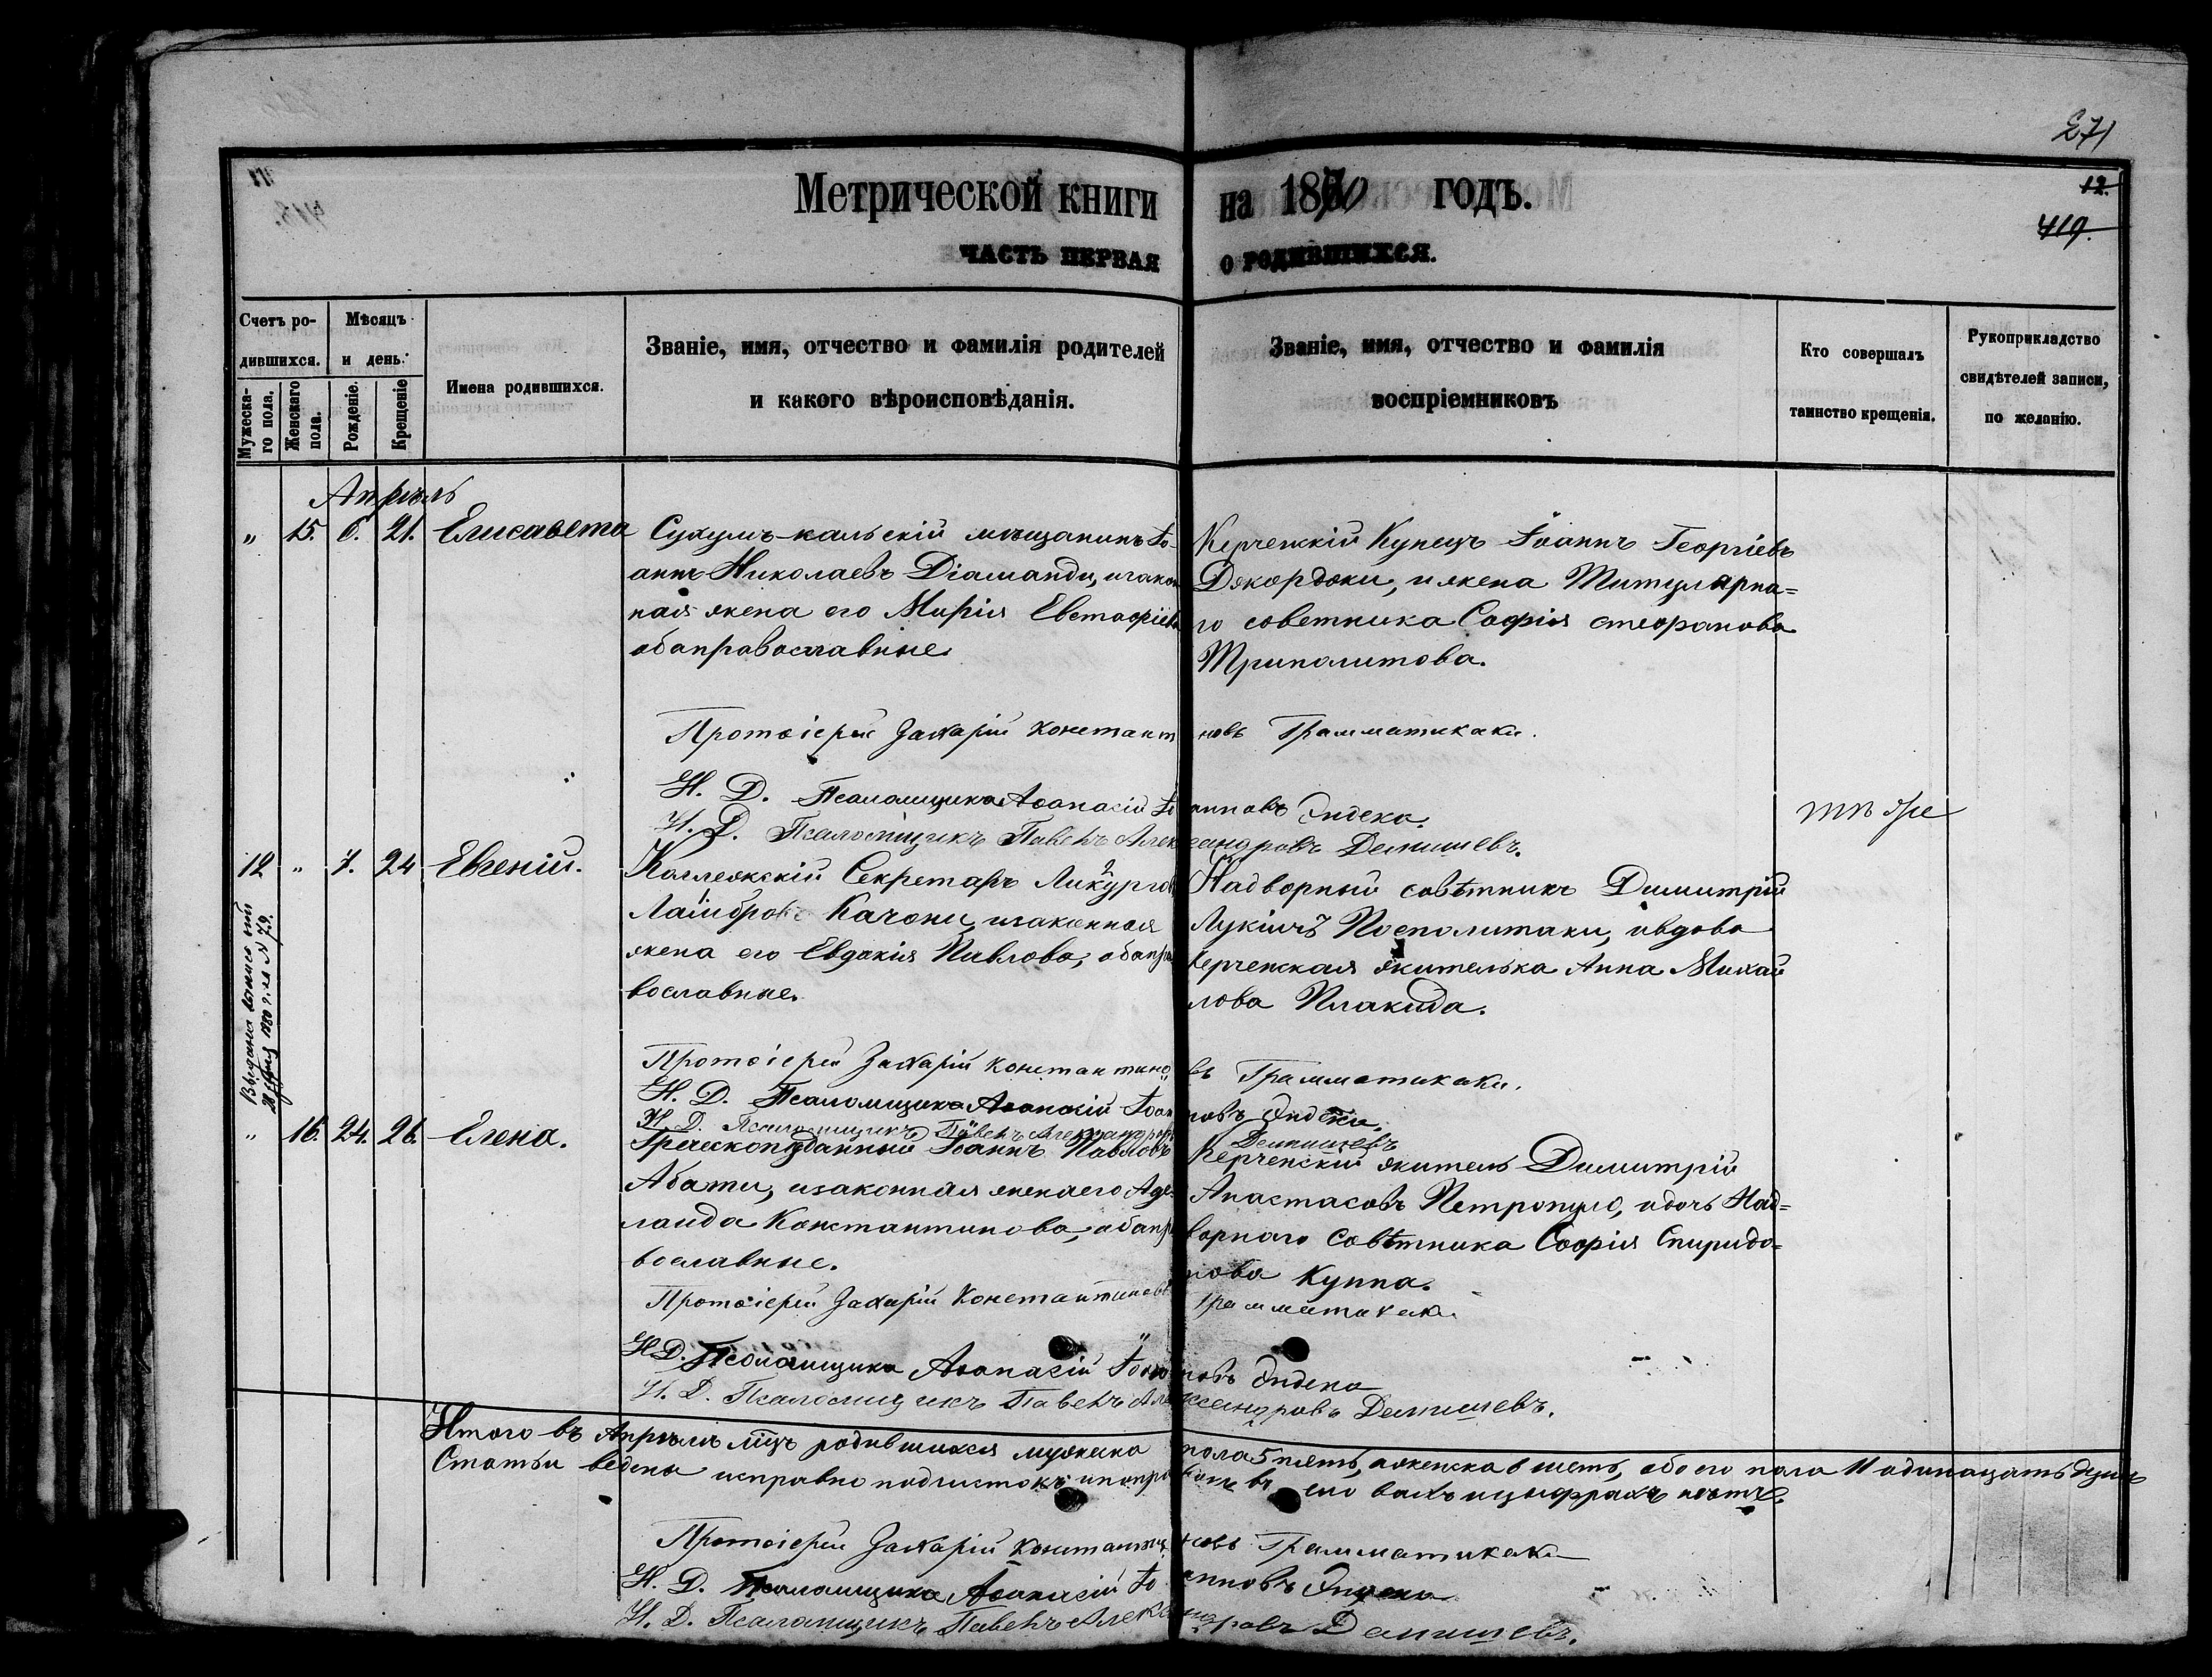 271
12.
419.
Метрической книги на 1870 годъ.
ЧАСТЬ ПЕРВАЯ О РОДИВШИХСЯ.
Счетъ ро-
дившихся.
Мужеска-
го пола.
Женскаго
пола.
Мѣсяцъ
и день.
Рожденіе.
Крещеніе
Имена родившихся.
Званіе, имя, отчество и фамилія родителей
и какого вѣроисповѣданія.
Званіе, имя, отчество и фамилія
воспріемниковъ
Кто совершалъ
таинство крещенія.
Рукоприкладство
свидѣтелей записи,
по желанію.
Апрѣль
" 15. 6. 21. Елисавета
Сухумъ-кальскій мѣщанинъ Іо-
аннъ Николаевъ Діаманди, изакон
ная жена его Марія Евстафіева
обаправославные
Керченскій Купецъ Іоаннъ Георгіевъ
Джорджи, и жена Титулярна=
го советника Софія стефанова
Триполитова.
Протоіерей Захарій Константиновъ Грамматикаки.
И. Д. Псаломщика Аѳанасій Іоанновъ Эндека.
И. Д. Псаломщикъ Павелъ Александровъ Демишевъ.
12 " 7. 24 Евгеній.
Выдана
1880 г. за № 79.
Коллежскій Секретарь Ликургъ
Качони, изаконная
жена его Евдокія Павлова, обапра
вославные.
Надворный совѣтникъ Димитрій
Лукичъ Посполитаки, ивдова
керченская жителька Анна Михай
лова Плакида.
Протоіерей Захарій Константиновъ Грамматикаки.
И. Д. Псаломщика Аѳанасій Іоанновъ Эндека.
И. Д. Псаломщикъ Павелъ Александровъ Демишевъ
" 16. 24. 26. Елена.
Греческоподданный Іоаннъ Павловъ
Абати, изаконная женаего Аде-
лаида Константинова, обапра
вославные.
Керченскій житель Димитрій
Анастасовъ Петропуло, идочь Над=
ворнаго Совѣтника Софія Спиридо=
нова Куппа.
Протоіерей Захарій Константиновъ Грамматикаки
И.Д. Псаломщика Аѳанасій Іоанновъ Эндека
И. Д. Псаломщикъ Павелъ Александровъ Демишевъ.
Итого въ Апрѣлѣ мцъ родившихся мужеска пола 5 пять, аженска 6 шесть, обоего пола 11 одинацать душъ
Статьи ведены исправно подчистокъ ипоправокъ въ ицыфрахъ нѣтъ.
Протоіерей Захарій Константиновъ Грамматикаки
И. Д. Псаломщика Аѳанасій Іоанновъ Эндека
И. Д. Псаломщикъ Павелъ Александровъ Демишевъ.